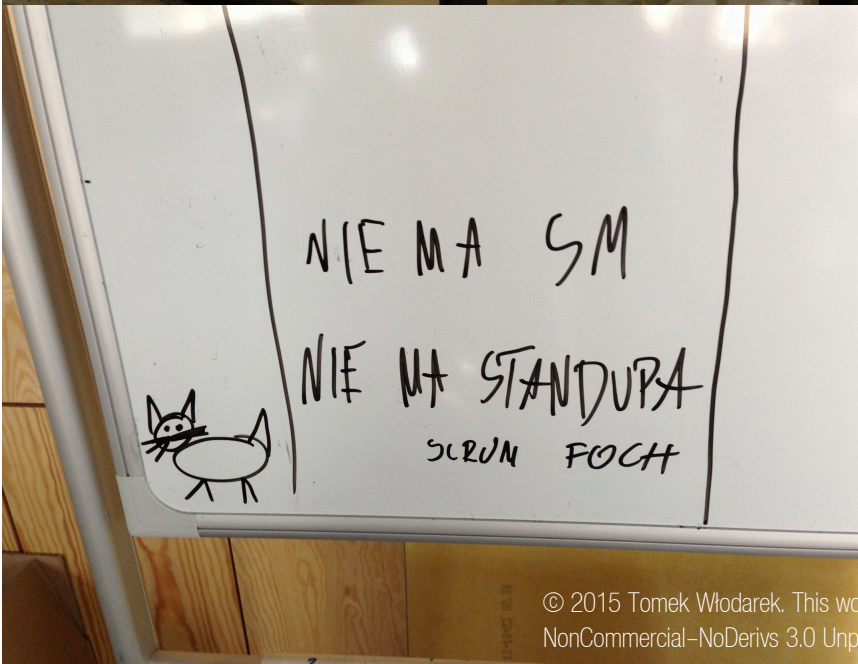 NIE MA SM
NIE MA STANDUPA
SCRUM FOCH
© 2015 Tomek Włodarek. This wo
NonCommercial-NoDerivs 3.0 Unp